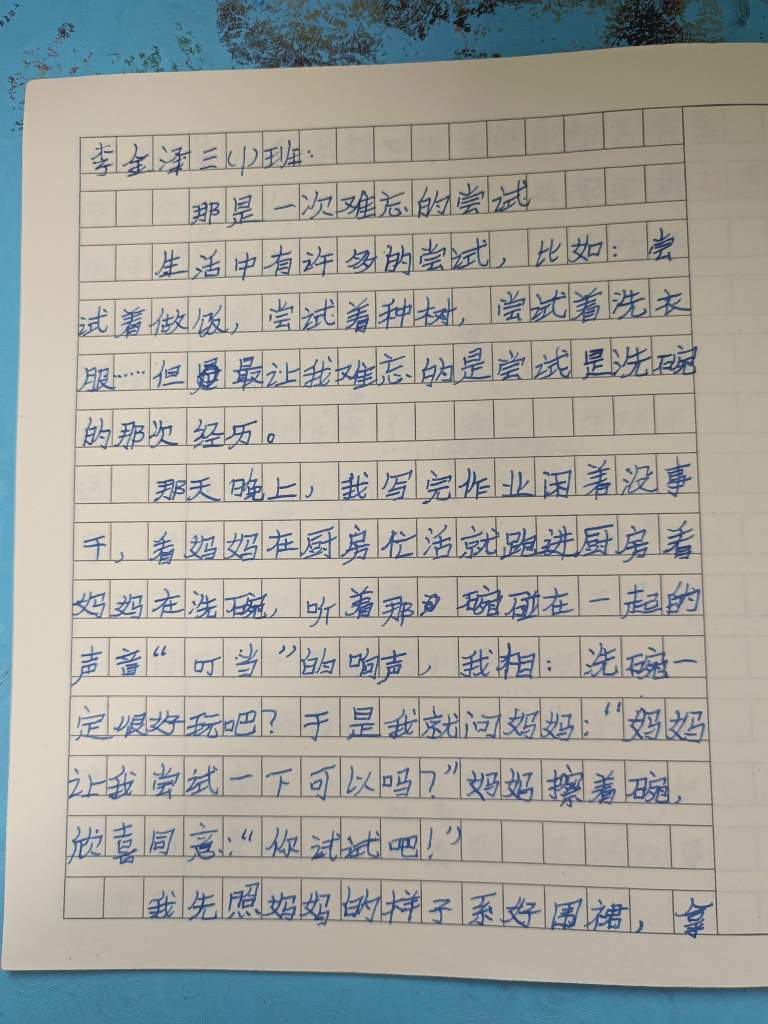 李金泽三(1)班:
那是一次难忘的尝试
生活中有许多的尝试，比如：尝
试着做饭，尝试着种树，尝试着洗衣
服……但最让我难忘的是尝试是洗碗
的那次经历。
那天晚上，我写完作业困着没事
干，看妈妈在厨房忙活就跑进厨房看
妈妈在洗碗，听着那碗碰在一起的
声音“叮当”的响声，我相：洗碗一
定恨好玩吧？于是我就问妈妈：“妈妈
让我尝试一下可以吗？”妈妈擦着碗，
欣喜同意：“你试试吧！”
我先照妈妈的样子系好围裙，拿